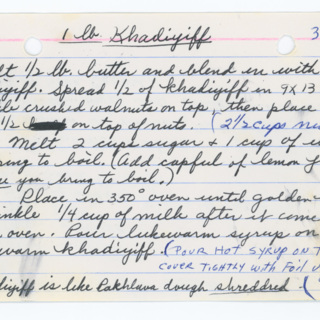 1 lb. Khadiyiff 3
lt 1/2 lb. butter and blend in with
iyiff. Spread 1/2 of khadiyiff in 9x13
crushed walnuts on top, then place
1/2 on top of nuts. (2 1/2 cups nu
Melt 2 cups sugar + 1 cup of w
ing to boil. (Add capful of lemon j
you bring to boil.)
Place in 350° oven until golden
inkle 1/4 cup of milk after it come
oven. Pour lukewarm syrup on
warm khadiyiff. (POUR HOT SYRUP ON T
COVER TIGHTLY WITH FOIL U
diyiff is like Pakhlava dough shreddred. (